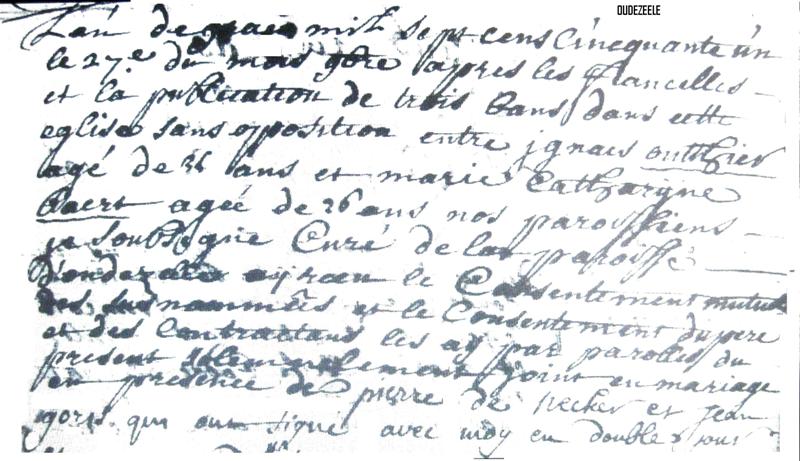 OUDEZEELE
L'an de grace mil sept cens Cincquante un
le 27e du mois 9bre apres les fiancelles
et la publication de trois bans dans cette
eglise sans opposition entre ignais outthier
agé de 36 ans et marie Catharyne
Baert agee de 26 ans nos paroissiens
je soubsigne Curé de la paroisse
D'oudezeele ay receu le Consentement mutuel
des surnommés et le Consentement du pere
et des Contractans les ay par parolles du
present solemnelement joint en mariage
en presence de pierre de necker et jean
gors qui ont signe avec moy en double